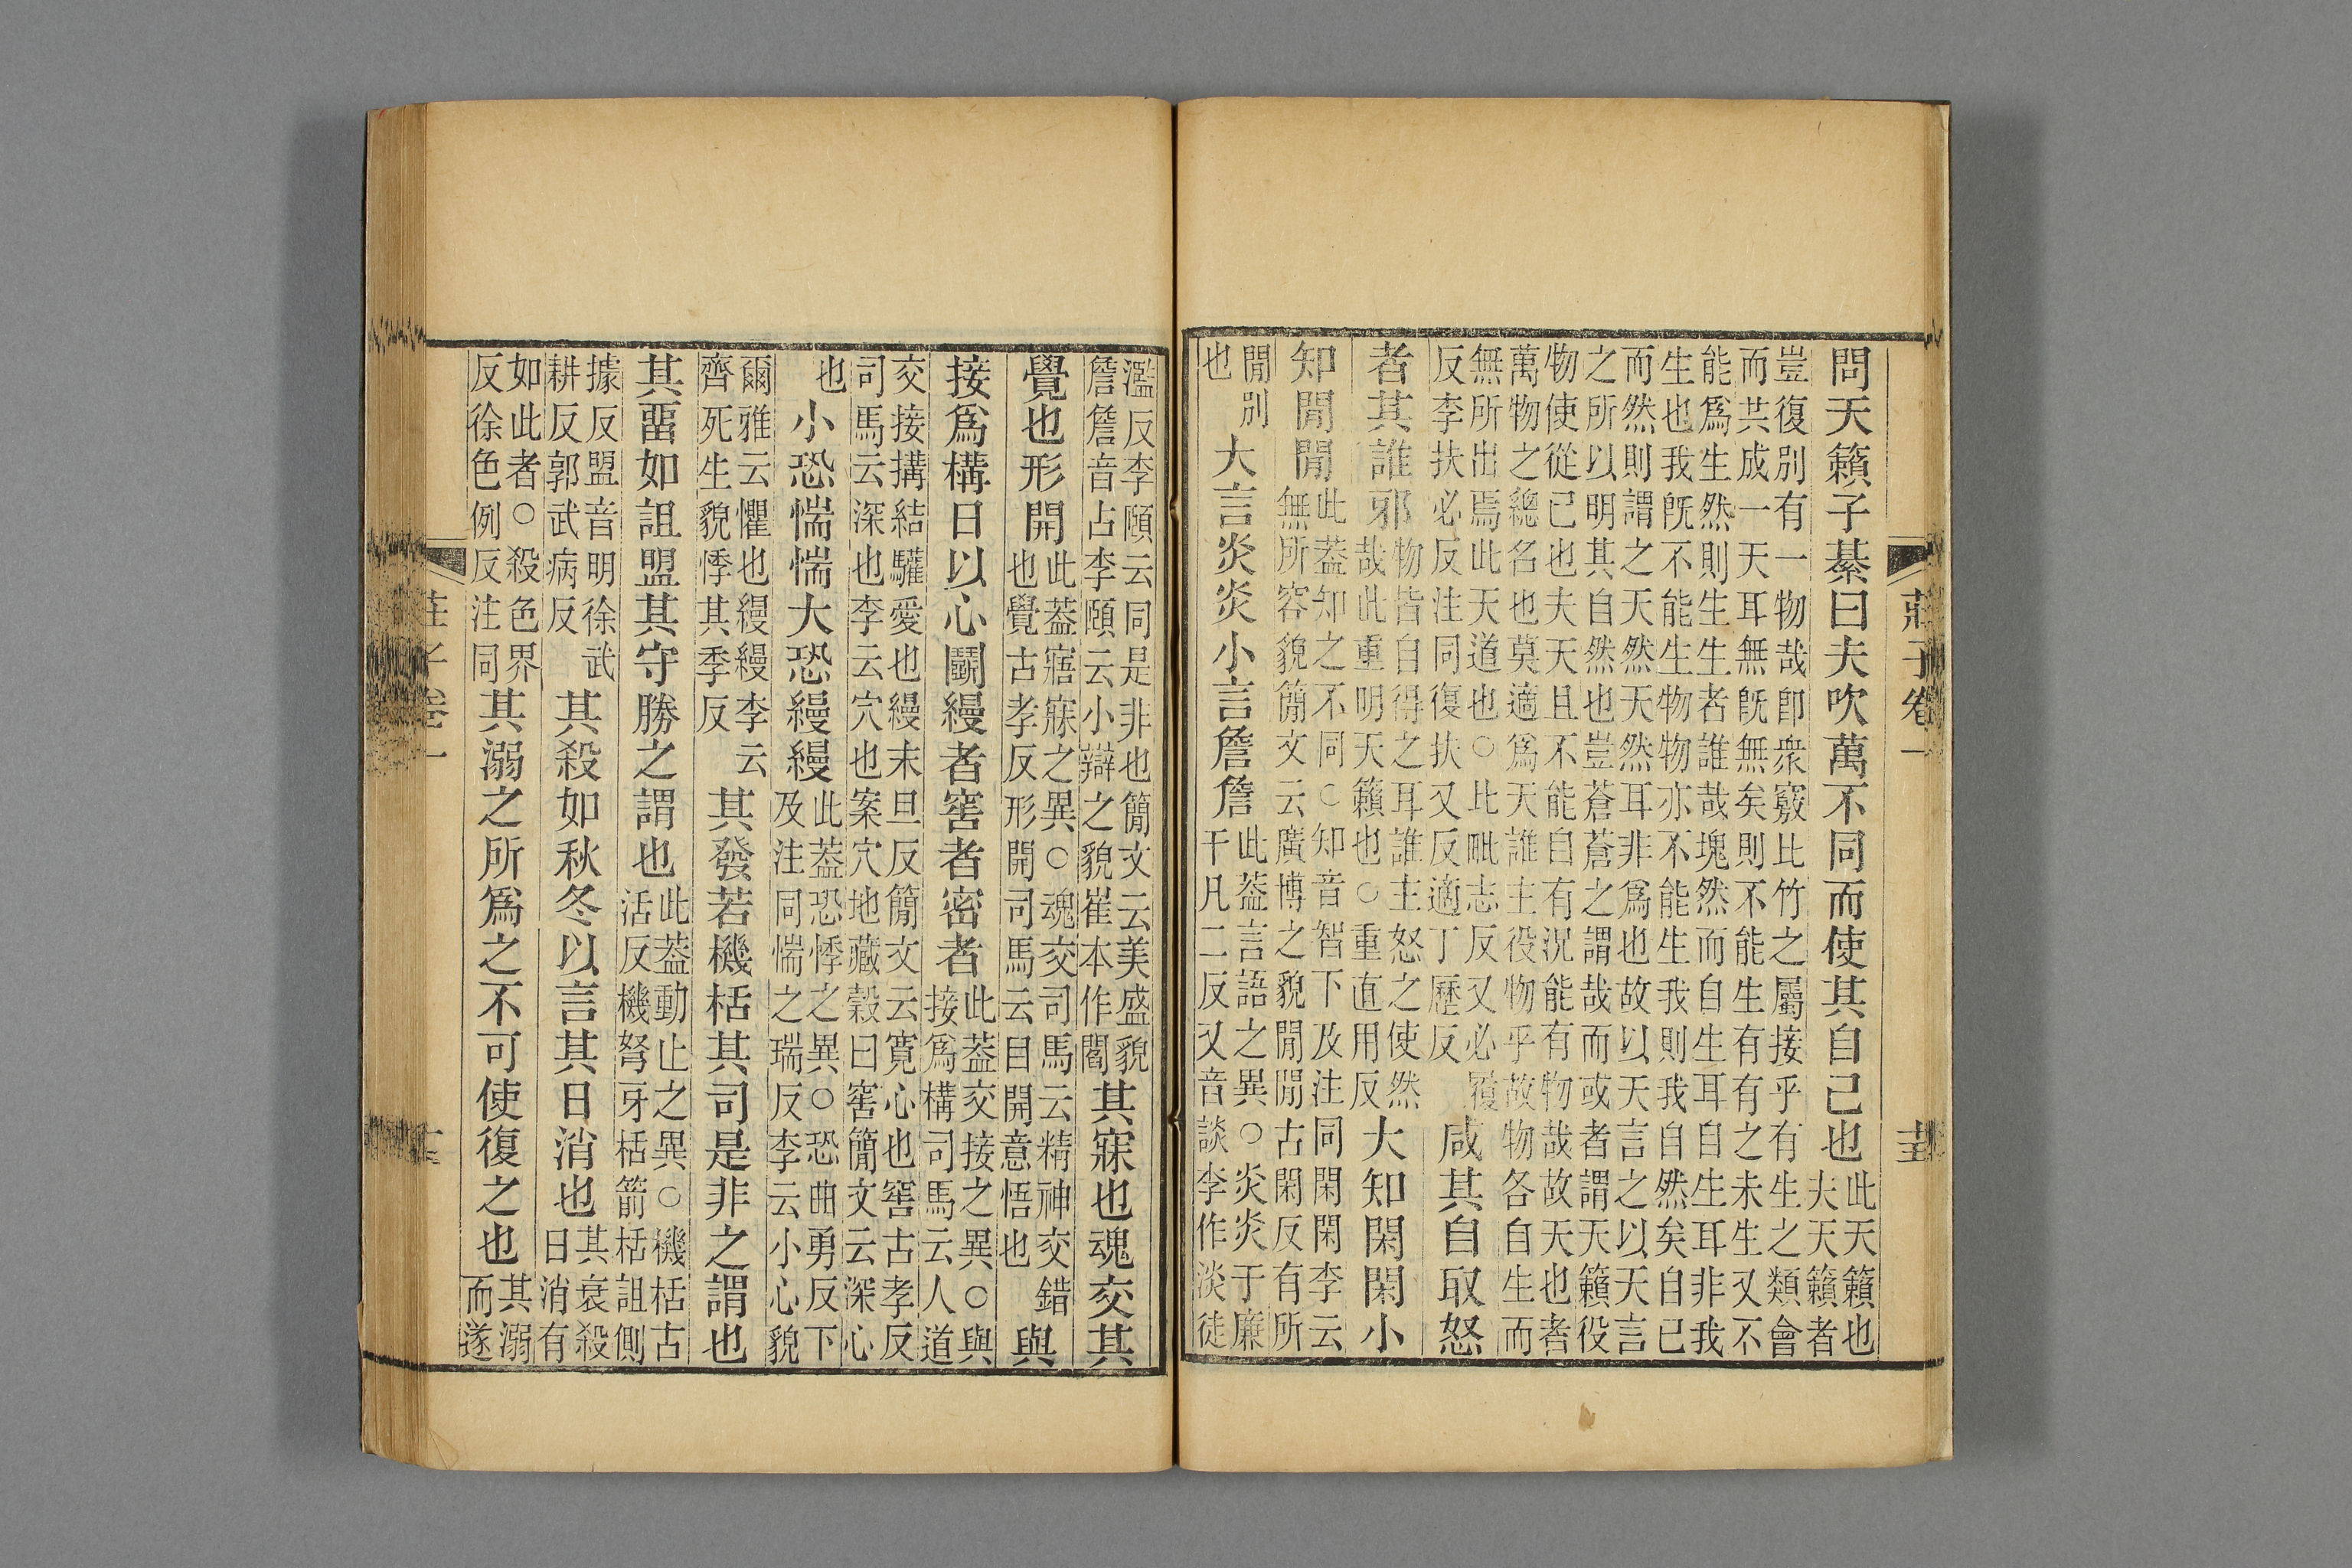 莊子卷一
問天籟子綦曰夫吹萬不同而使其自己也此天籟也夫天籟者
豈復別有一物哉即衆竅比竹之屬接乎有生之類會
而共成一天耳無旣無矣則不能生有有之未生又不
能爲生然則生生者誰哉塊然而自生耳自生耳非我
生也我旣不能生物物亦不能生我則我自然矣自已
而然則謂之天然天然耳非爲也故以天言之以天言
之所以明其自然也豈蒼蒼之謂哉而或者謂天籟役
物使從已也夫天且不能自有況能有物哉故天也者
萬物之總名也莫適爲天誰主役物乎故物各自生而
無所出焉此天道也○比毗志反又必履
反李扶必反注同復扶又反適丁歷反咸其自取怒
者其誰邪物皆自得之耳誰主怒之使然哉此重明天籟也○重直用反大知閑閑小
知閒閒此蓋知之不同○知音智下及注同閑閑李云無所容貌簡文云廣博之貌閒閒古閑反有所
閒別也大言炎炎小言詹詹此蓋言語之異○炎炎于廉干凡二反又音談李作淡徒
濫反李頤云同是非也簡文云美盛貌詹詹音占李頤云小辯之貌崔本作閻其寐也魂交其
覺也形開此蓋寤寐之異○魂交司馬云精神交錯也覺古孝反形開司馬云目開意悟也與
接爲構日以心鬬縵者窖者密者此蓋交接之異○與接爲構司馬云人道
交接搆結驩愛也縵末旦反簡文云寬心也窖古孝反
司馬云深也李云穴也案穴地藏穀曰窖簡文云深心
也小恐惴惴大恐縵縵此蓋恐悸之異○恐曲勇反下及注同惴之瑞反李云小心貌
爾雅云懼也縵縵李云齊死生貌悸其季反其發若機栝其司是非之謂也
其畱如詛盟其守勝之謂也此蓋動止之異○機栝古活反機弩牙栝箭栝詛側
據反盟音明徐武耕反郭武病反其殺如秋冬以言其日消也其衰殺日消有
如此者○殺色界反徐色例反注同其溺之所爲之不可使復之也其溺而遂
莊子卷一